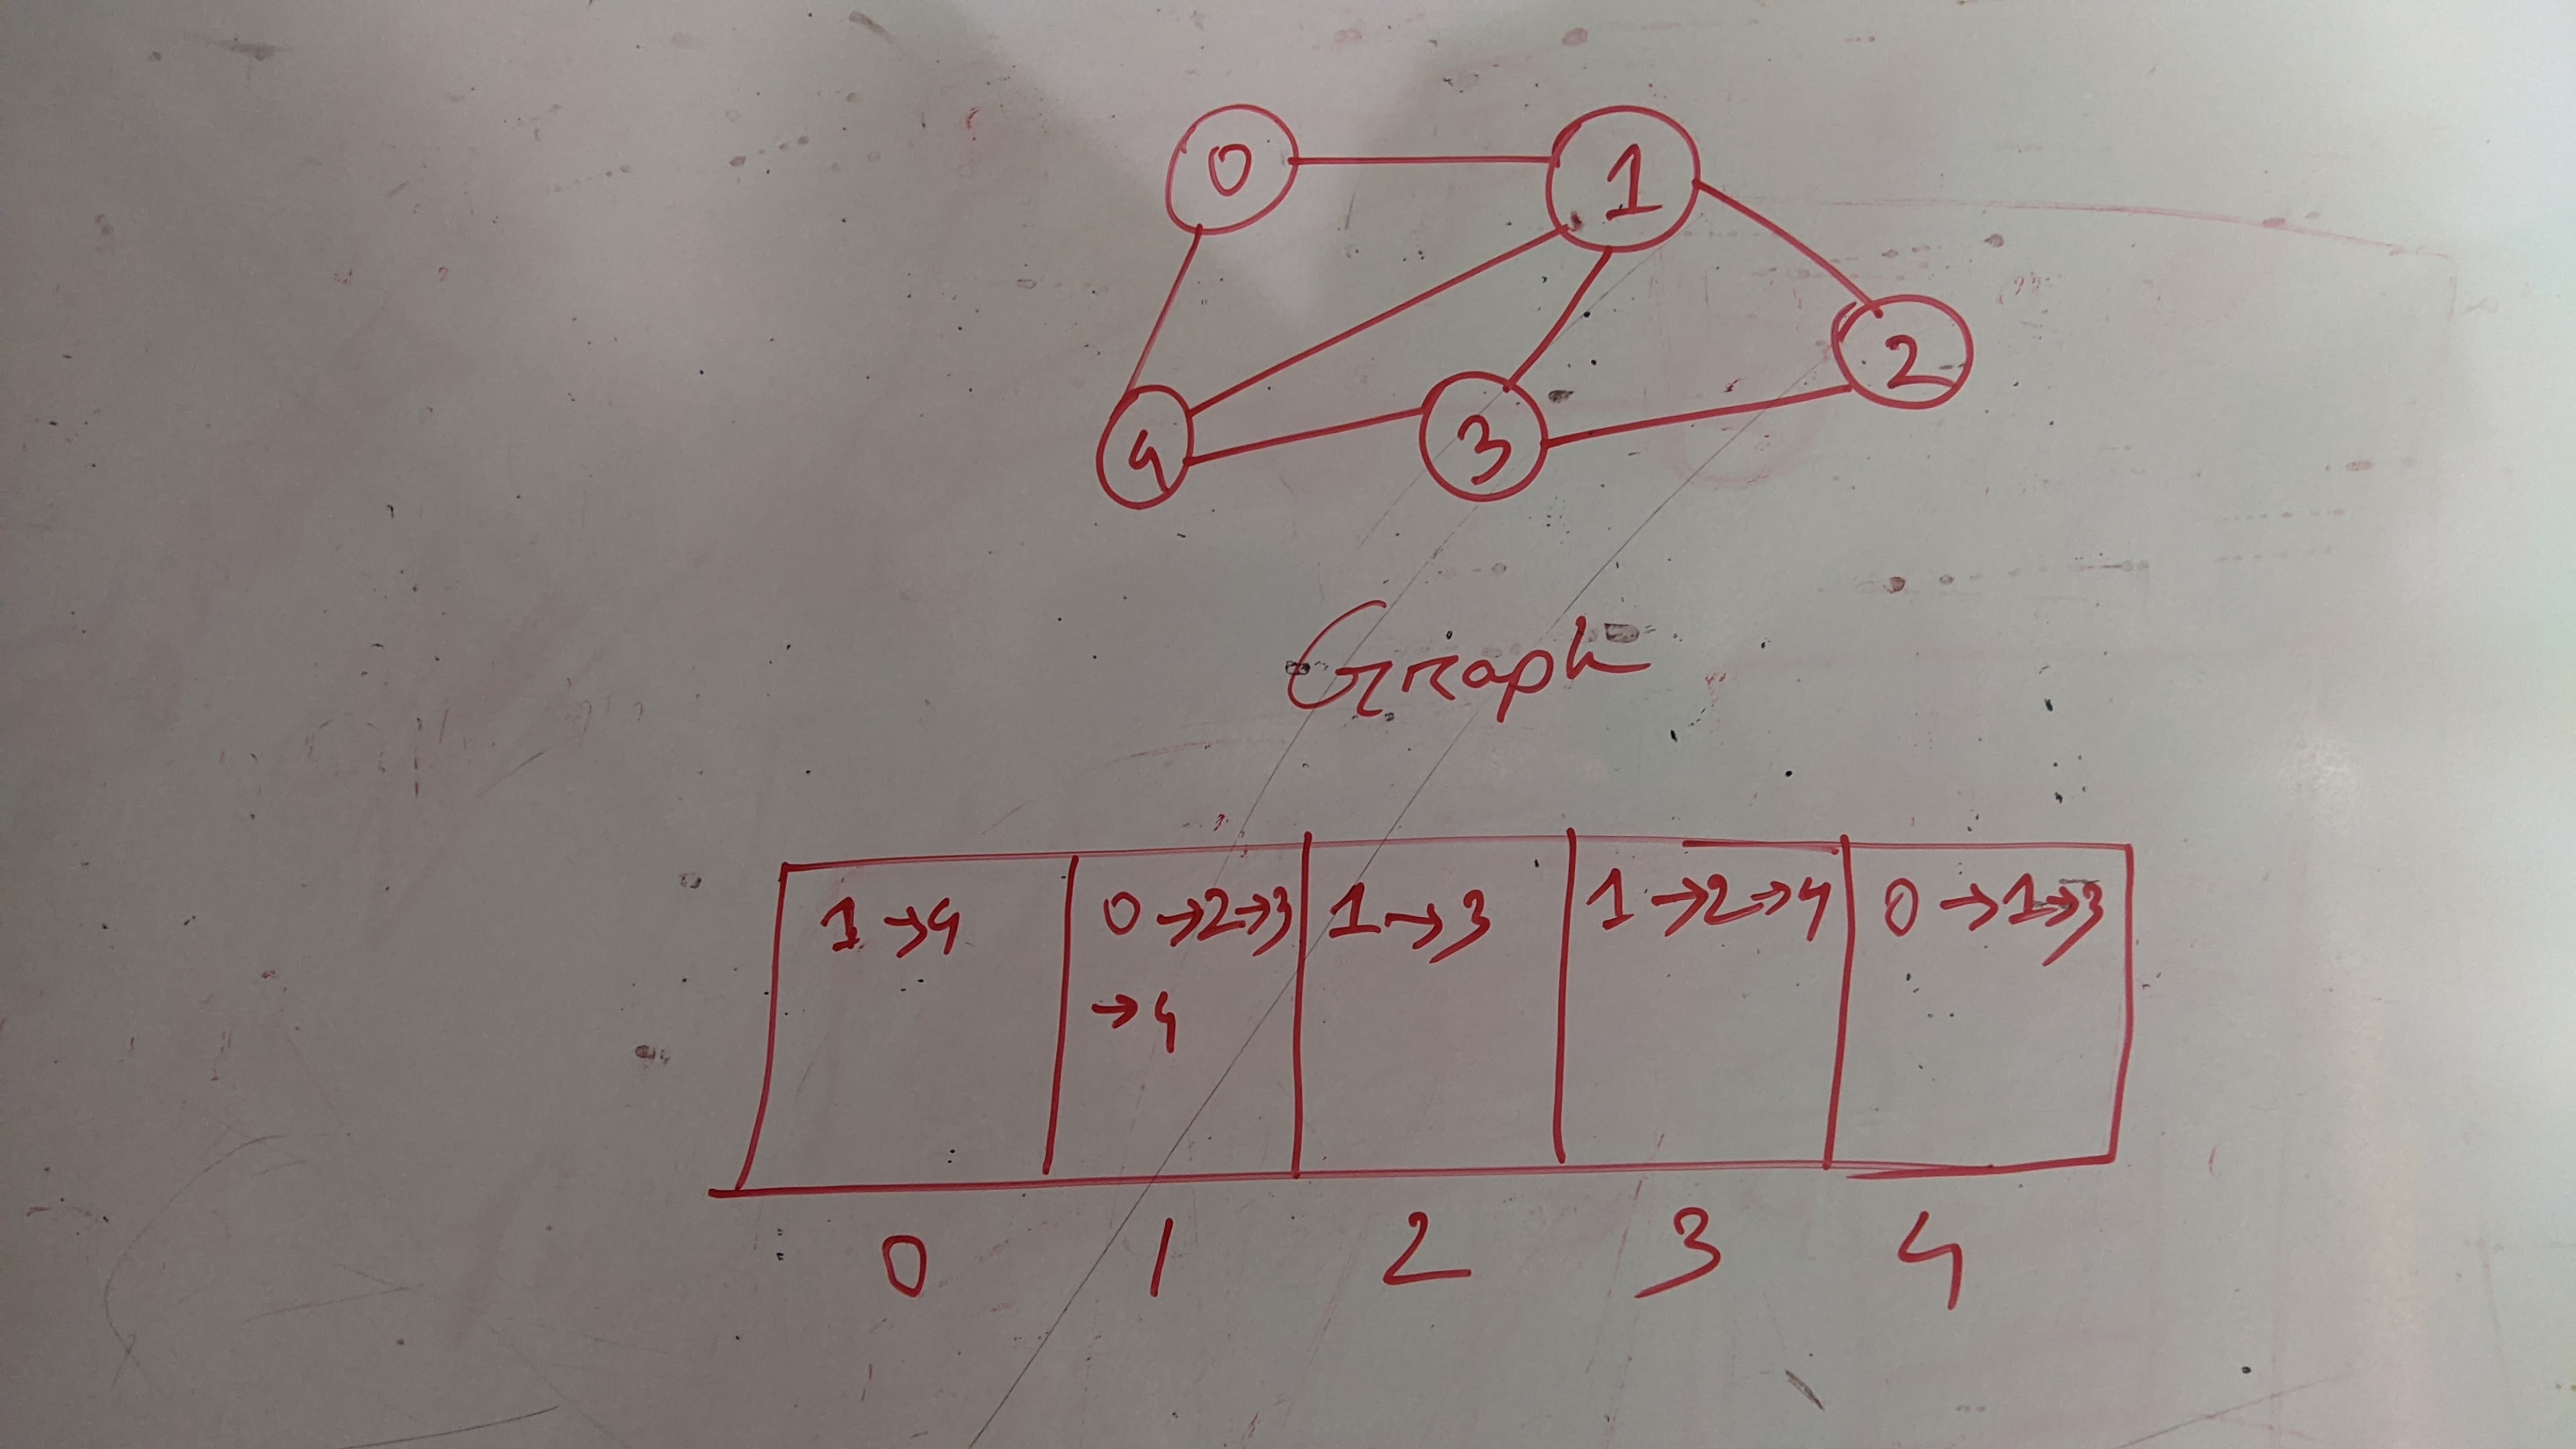 0 1
2
4 3
Graph
1→4 0→2→3 1→3 1→2→4 0→1→3
→4
0 1 2 3 4